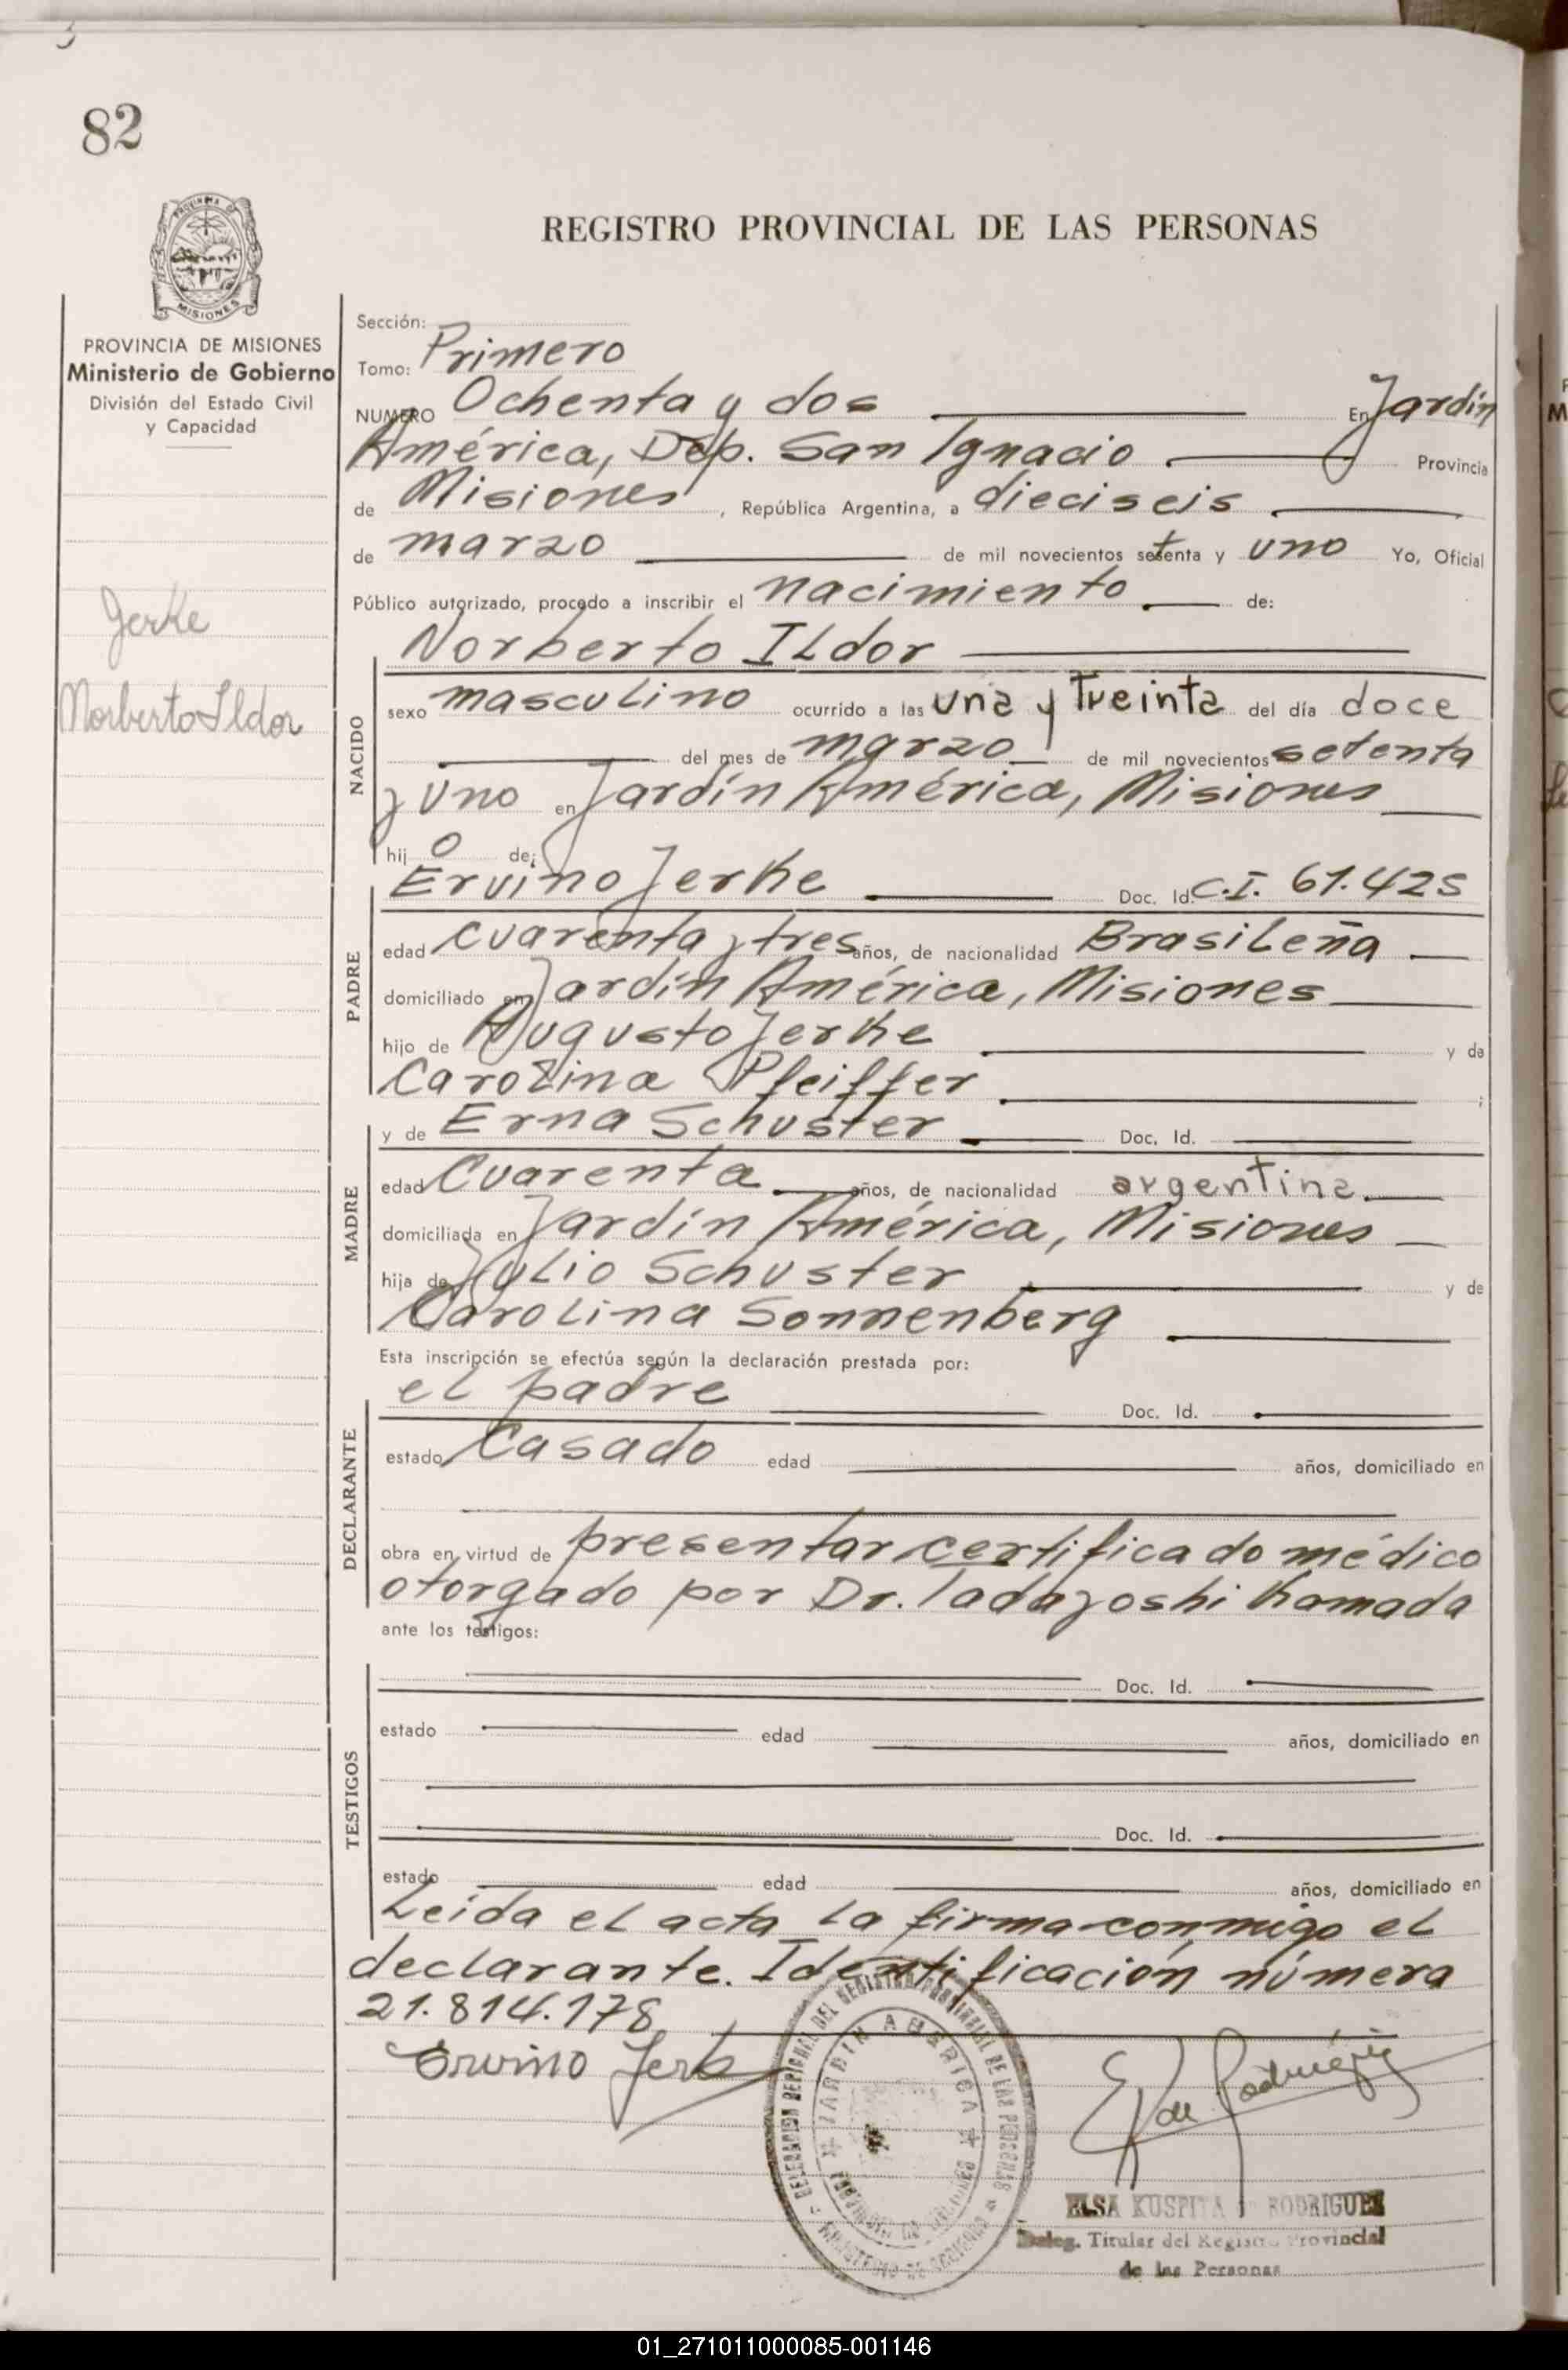 82
REGISTRO PROVINCIAL DE LAS PERSONAS
PROVINCIA
MISIONES
PROVINCIA DE MISIONES
Ministerio de Gobierno
División del Estado Civil
y Capacidad
Jerke
Norberto Ildor
Sección:
Tomo: Primero
NUMERO Ochenta y dos En Jardín
América, Dep. San Ignacio Provincia
de Misiones, República Argentina, a dieciseis
de marzo de mil novecientos setenta y uno Yo, Oficial
Público autorizado, procedo a inscribir el nacimiento de:
Norberto ILdor
NACIDO
sexo masculino ocurrido a las una y treinta del día doce
del mes de marzo de mil novecientos setenta
y uno en Jardín América, Misiones
hijo de:
PADRE
Ervino Jerke Doc. Id. C.I. 61.425
edad cuarenta y tres años, de nacionalidad Brasileña
domiciliado en Jardín América, Misiones
hijo de Augusto Jerke y de
Carolina Pfeiffer ;
MADRE
y de Erna Schuster Doc. Id.
edad Cuarenta años, de nacionalidad argentina.
domiciliada en Jardín América, Misiones
hija de Julio Schuster y de
Carolina Sonnenberg
Esta inscripción se efectúa según la declaración prestada por:
DECLARANTE
el padre Doc. Id.
estado Casado edad años, domiciliado en
obra en virtud de presentar certificado médico
otorgado por Dr. Tadayoshi Kamada
ante los testigos:
TESTIGOS
Doc. Id.
estado edad años, domiciliado en
Doc. Id.
estado edad años, domiciliado en
Leída el acta la firma conmigo el
declarante. Identificación número
21.814.178
Ervino Jerke
E K de Rodríguez
DELEGACION DEL REGISTRO PROVINCIAL DE LAS PERSONAS
JARDIN AMERICA
MINISTERIO DE GOBIERNO
ELSA KUSPITA de RODRIGUEZ
Deleg. Titular del Registro Provincial
de las Personas
01_271011000085-001146